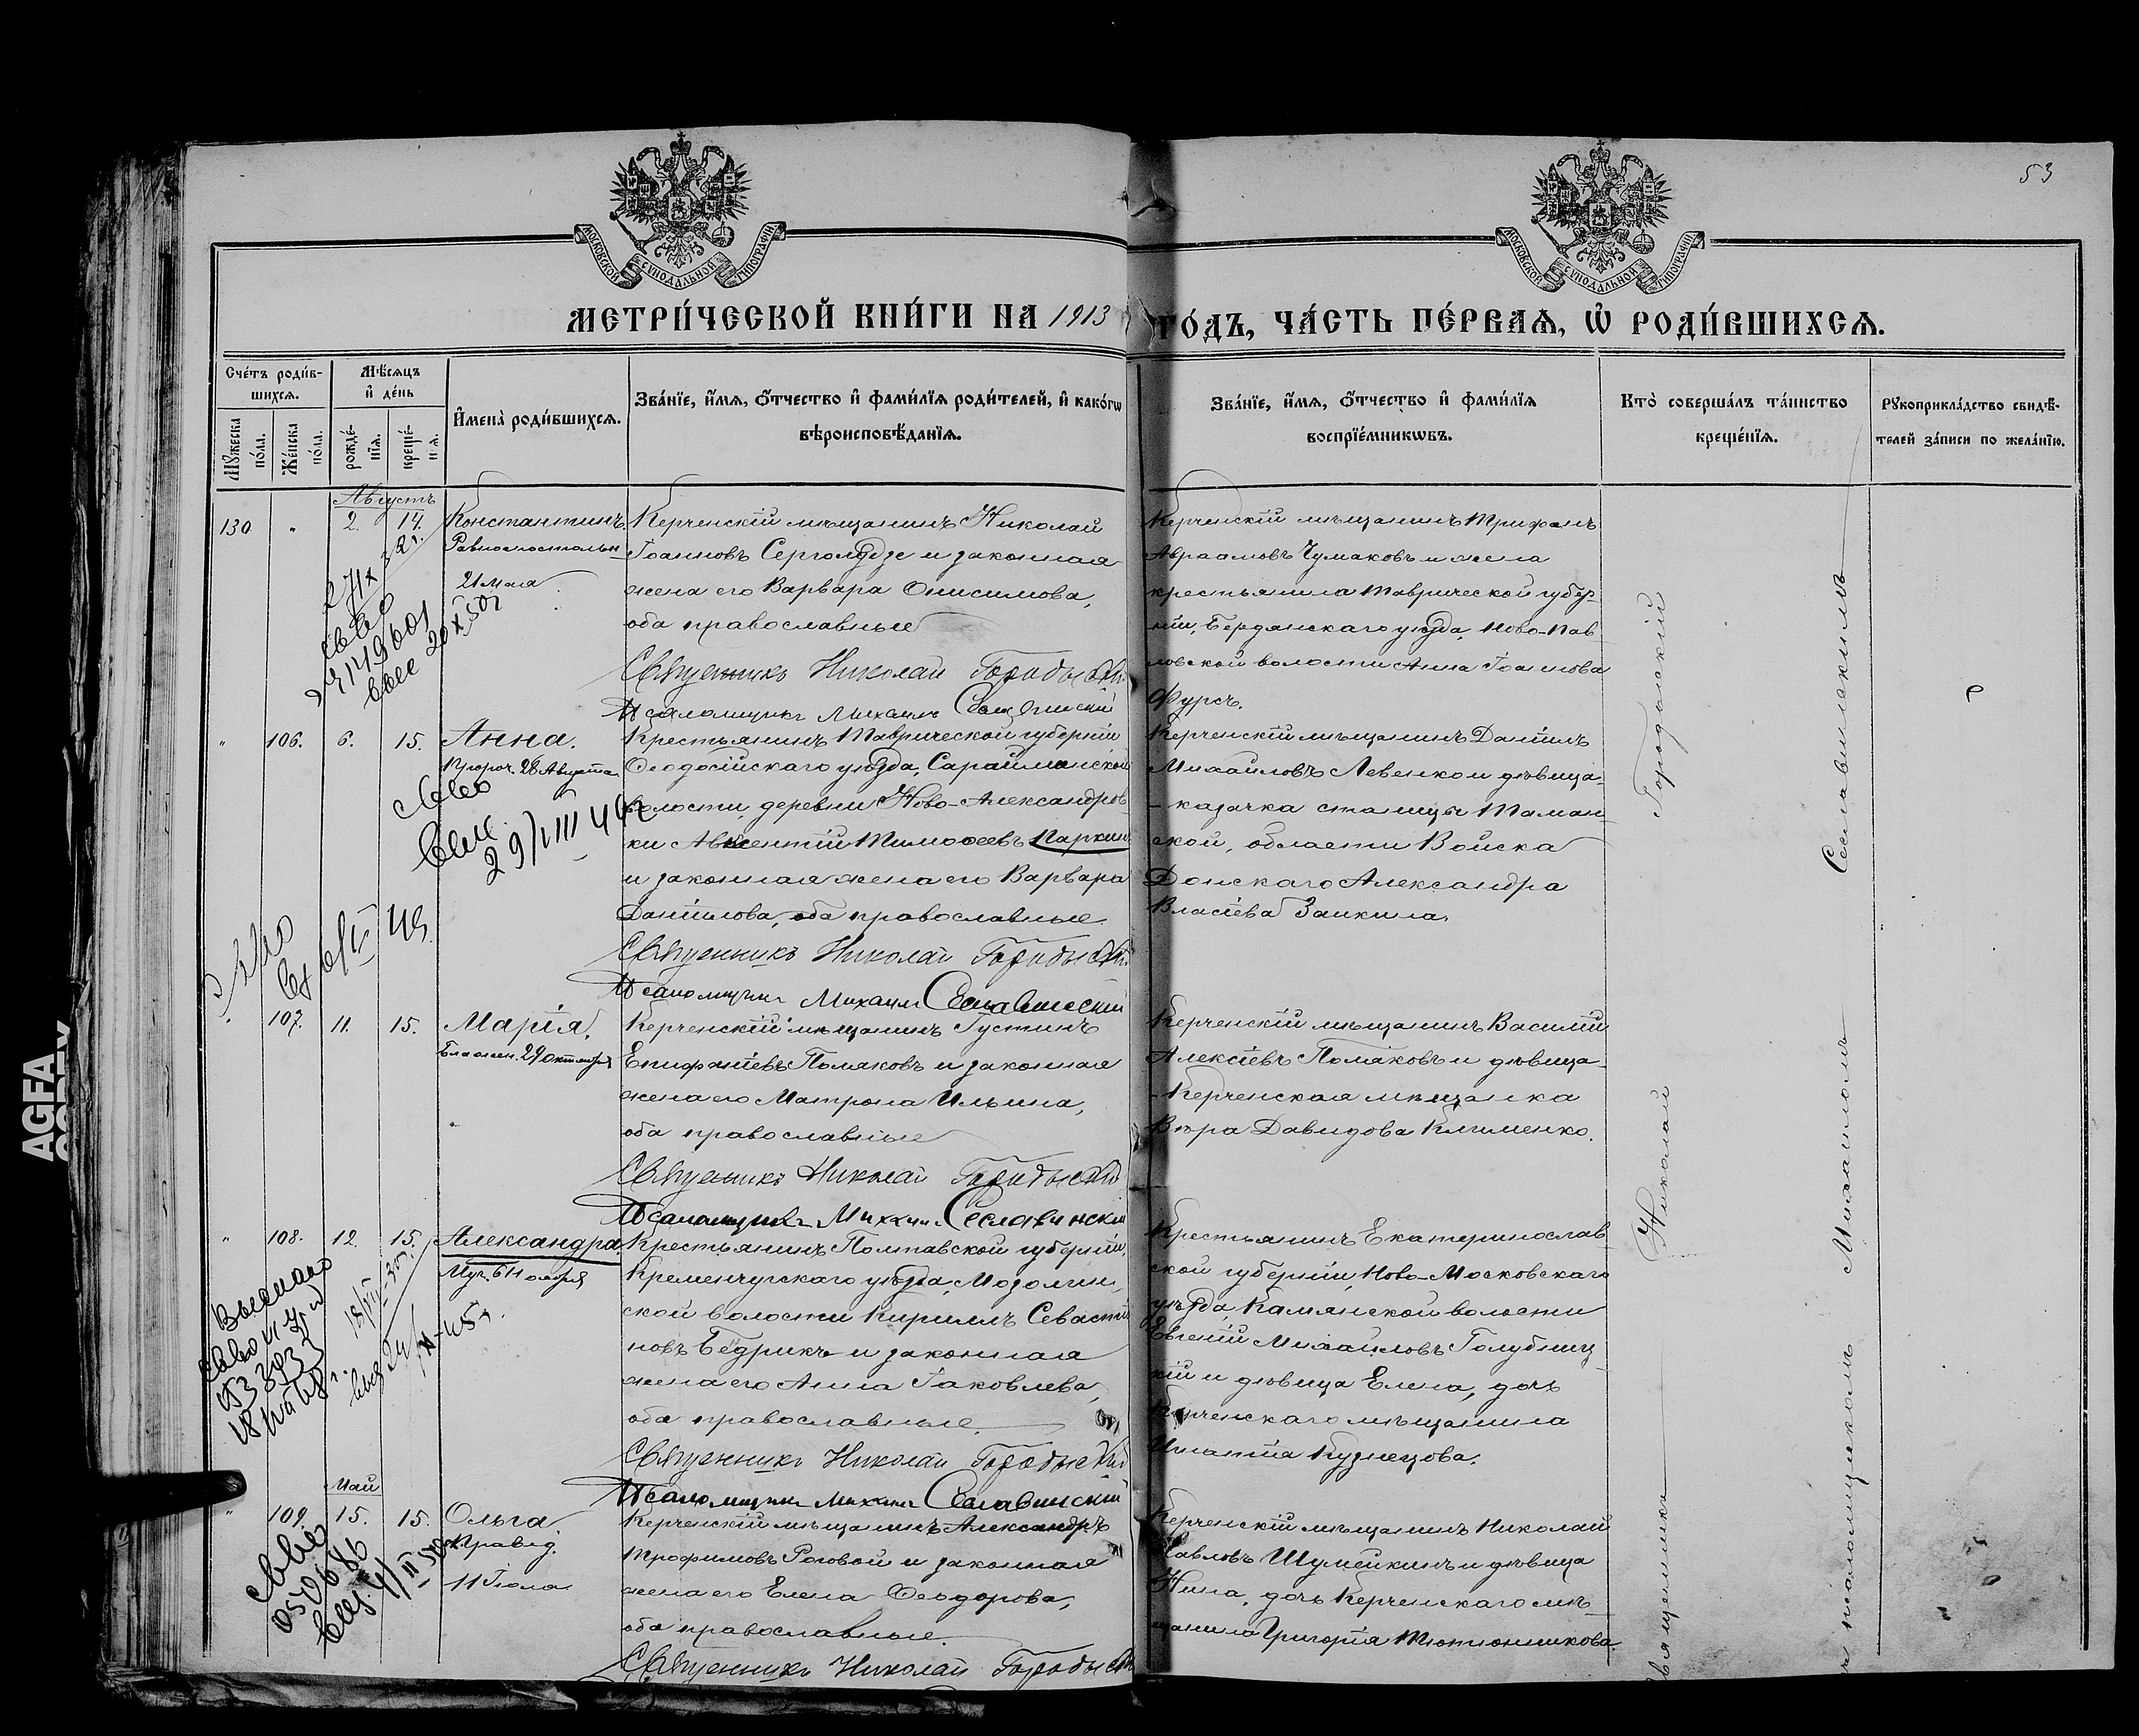 53
МОСКОВСКОЙ СУНОДАЛЬНОЙ ТИПОГРАФІИ
МОСКОВСКОЙ СУНОДАЛЬНОЙ ТИПОГРАФІИ
МЕТРИ́ЧЕСКОЙ КНИ́ГИ НА 1913 ГО́ДЪ, ЧА́СТЬ ПЕ́РВАѦ, Ѡ҆ РОДИ́ВШИХСѦ.
Сче́тъ роди́в-
шихсѧ.
Мꙋ́жеска по́ла.
Же́нска по́ла.
Мѣ́сѧцъ и҆ де́нь
рожде́-нїѧ.
креще́-нїѧ.
И҆мена̀ роди́вшихсѧ.
Зва́нїе, и҆́мѧ, ѻ҆́тчество и҆ фами́лїѧ роди́телей, и҆ како́гѡ
вѣроисповѣ́данїѧ.
Зва́нїе, и҆́мѧ, ѻ҆́тчество и҆ фами́лїѧ
воспрїе́мникѡвъ.
Кто̀ соверша́лъ та́инство
креще́нїѧ.
Рꙋкоприкла́дство свидѣ́-
телей за́писи по жела́нїю.
Августъ
130 " 2. 14. Константинъ.
Равноапостольн
21 Мая
Керченскій мѣщанинъ Николай
Іоанновъ и законная
жена его Варвара Онисимова,
оба православные
Священникъ Николай Городыскій
Псаломщикъ Михаилъ Сеславинскій
Керченскій мѣщанинъ Трифонъ
Авраамовъ Чумаковъ и жена
крестьянина Таврической губер-
ніи, Бердянскаго уѣзда, Ново-Пав
ловской волости Анна Іоаннова
Фурсъ.
" 106. 6. 15. Анна.
Пророч. 28 Августа.
Крестьянинъ Таврической губерніи
Ѳеодосійскаго уѣзда, Сарайминской
волости, деревни Ново-Александров
ки Авксентій Тимоѳеевъ Паркин
и законная жена его Варвара
Даніилова, оба православные.
Священникъ Николай Городыскій
Псаломщикъ Михаилъ Сеславинскій
Керченскій мѣщанинъ Даніилъ
Михайловъ Левенко и дѣвица-
- казачка станицы Таман-
ской, области Войска
Донскаго Александра
Власіева Заикина.
" 107. 11. 15. Марія.
Блажен. 29 октября
Керченскій мѣщанинъ Іустинъ
Епифаніевъ Поляковъ и законная
жена его Матрона Ильина,
оба православные
Священникъ Николай Городыскій
Псаломщикъ Михаилъ Сеславинскій
Керченскій мѣщанинъ Василій
Алексіевъ Поляковъ и дѣвица-
- Керченская мѣщанка
Вѣра Давидова Клименко.
" 108. 12. 15. Александра.
Муч. 6 Ноября
Крестьянинъ Полтавской губерніи,
Кременчугскаго уѣзда,
ской волости Кириллъ Севастія
новъ Бедрикъ и законная
жена его Анна Іаковлева,
оба православные.
Священникъ Николай Городыскій
Псаломщикъ Михаилъ Сеславинскій
Крестьянинъ Екатеринослав
ской губерніи, Ново-Московскаго
уѣзда, Камянской волости
Евгеній Михайловъ Голубниц-
кій и дѣвица Елена, дочь
Керченскаго мѣщанина
Игнатія Кузнецова.
Май
" 109. 15. 15. Ольга
Правед.
11 Іюля
Керченскій мѣщанинъ Александръ
Трофимовъ Роговой и законная
жена его Елена Ѳеодорова,
оба православные.
Священникъ Николай Городыскій
Керченскій мѣщанинъ Николай
Павловъ Шумейкинъ и дѣвица
Нина, дочь Керченскаго мѣ-
щанина Григорія Тютюнникова.
Священникъ Николай Городыскій
съ псаломщикомъ Михаиломъ Сеславинскимъ
AGFA